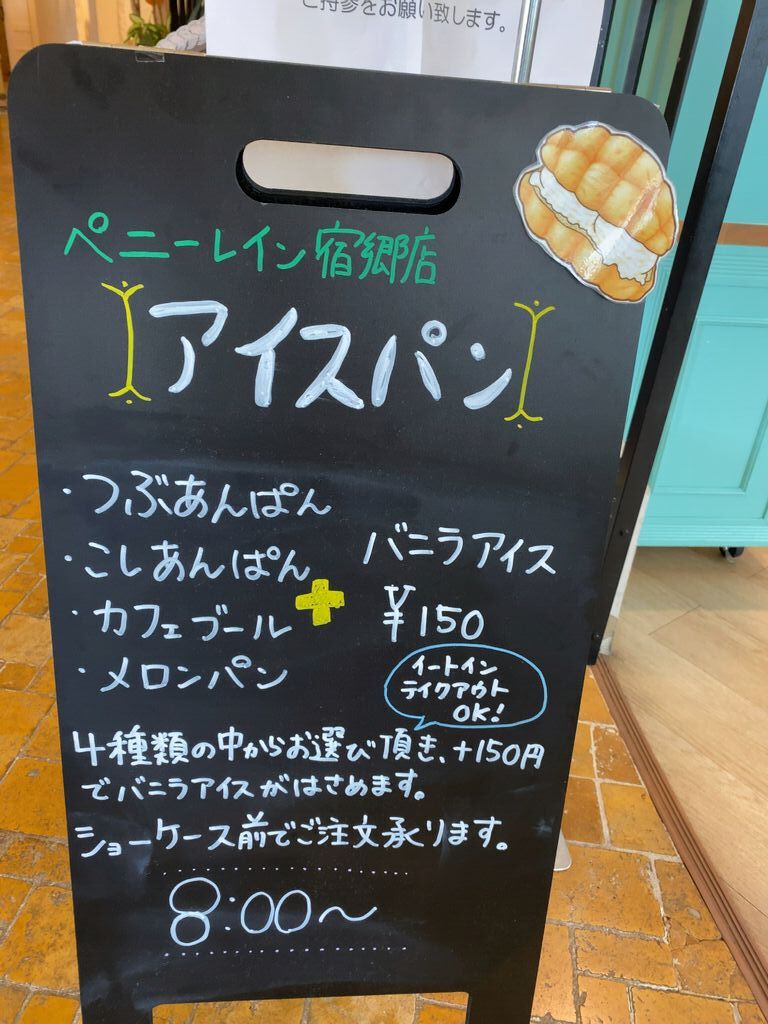 ご持参をお願い致します。
ペニーレイン宿郷店
アイスパン
・つぶあんぱん
・こしあんぱん
・カフェブール
・メロンパン
+
バニラアイス
¥150
イートイン
テイクアウト
OK!
4種類の中からお選び頂き、+150円
でバニラアイスがはさめます。
ショーケース前でご注文承ります。
8:00〜